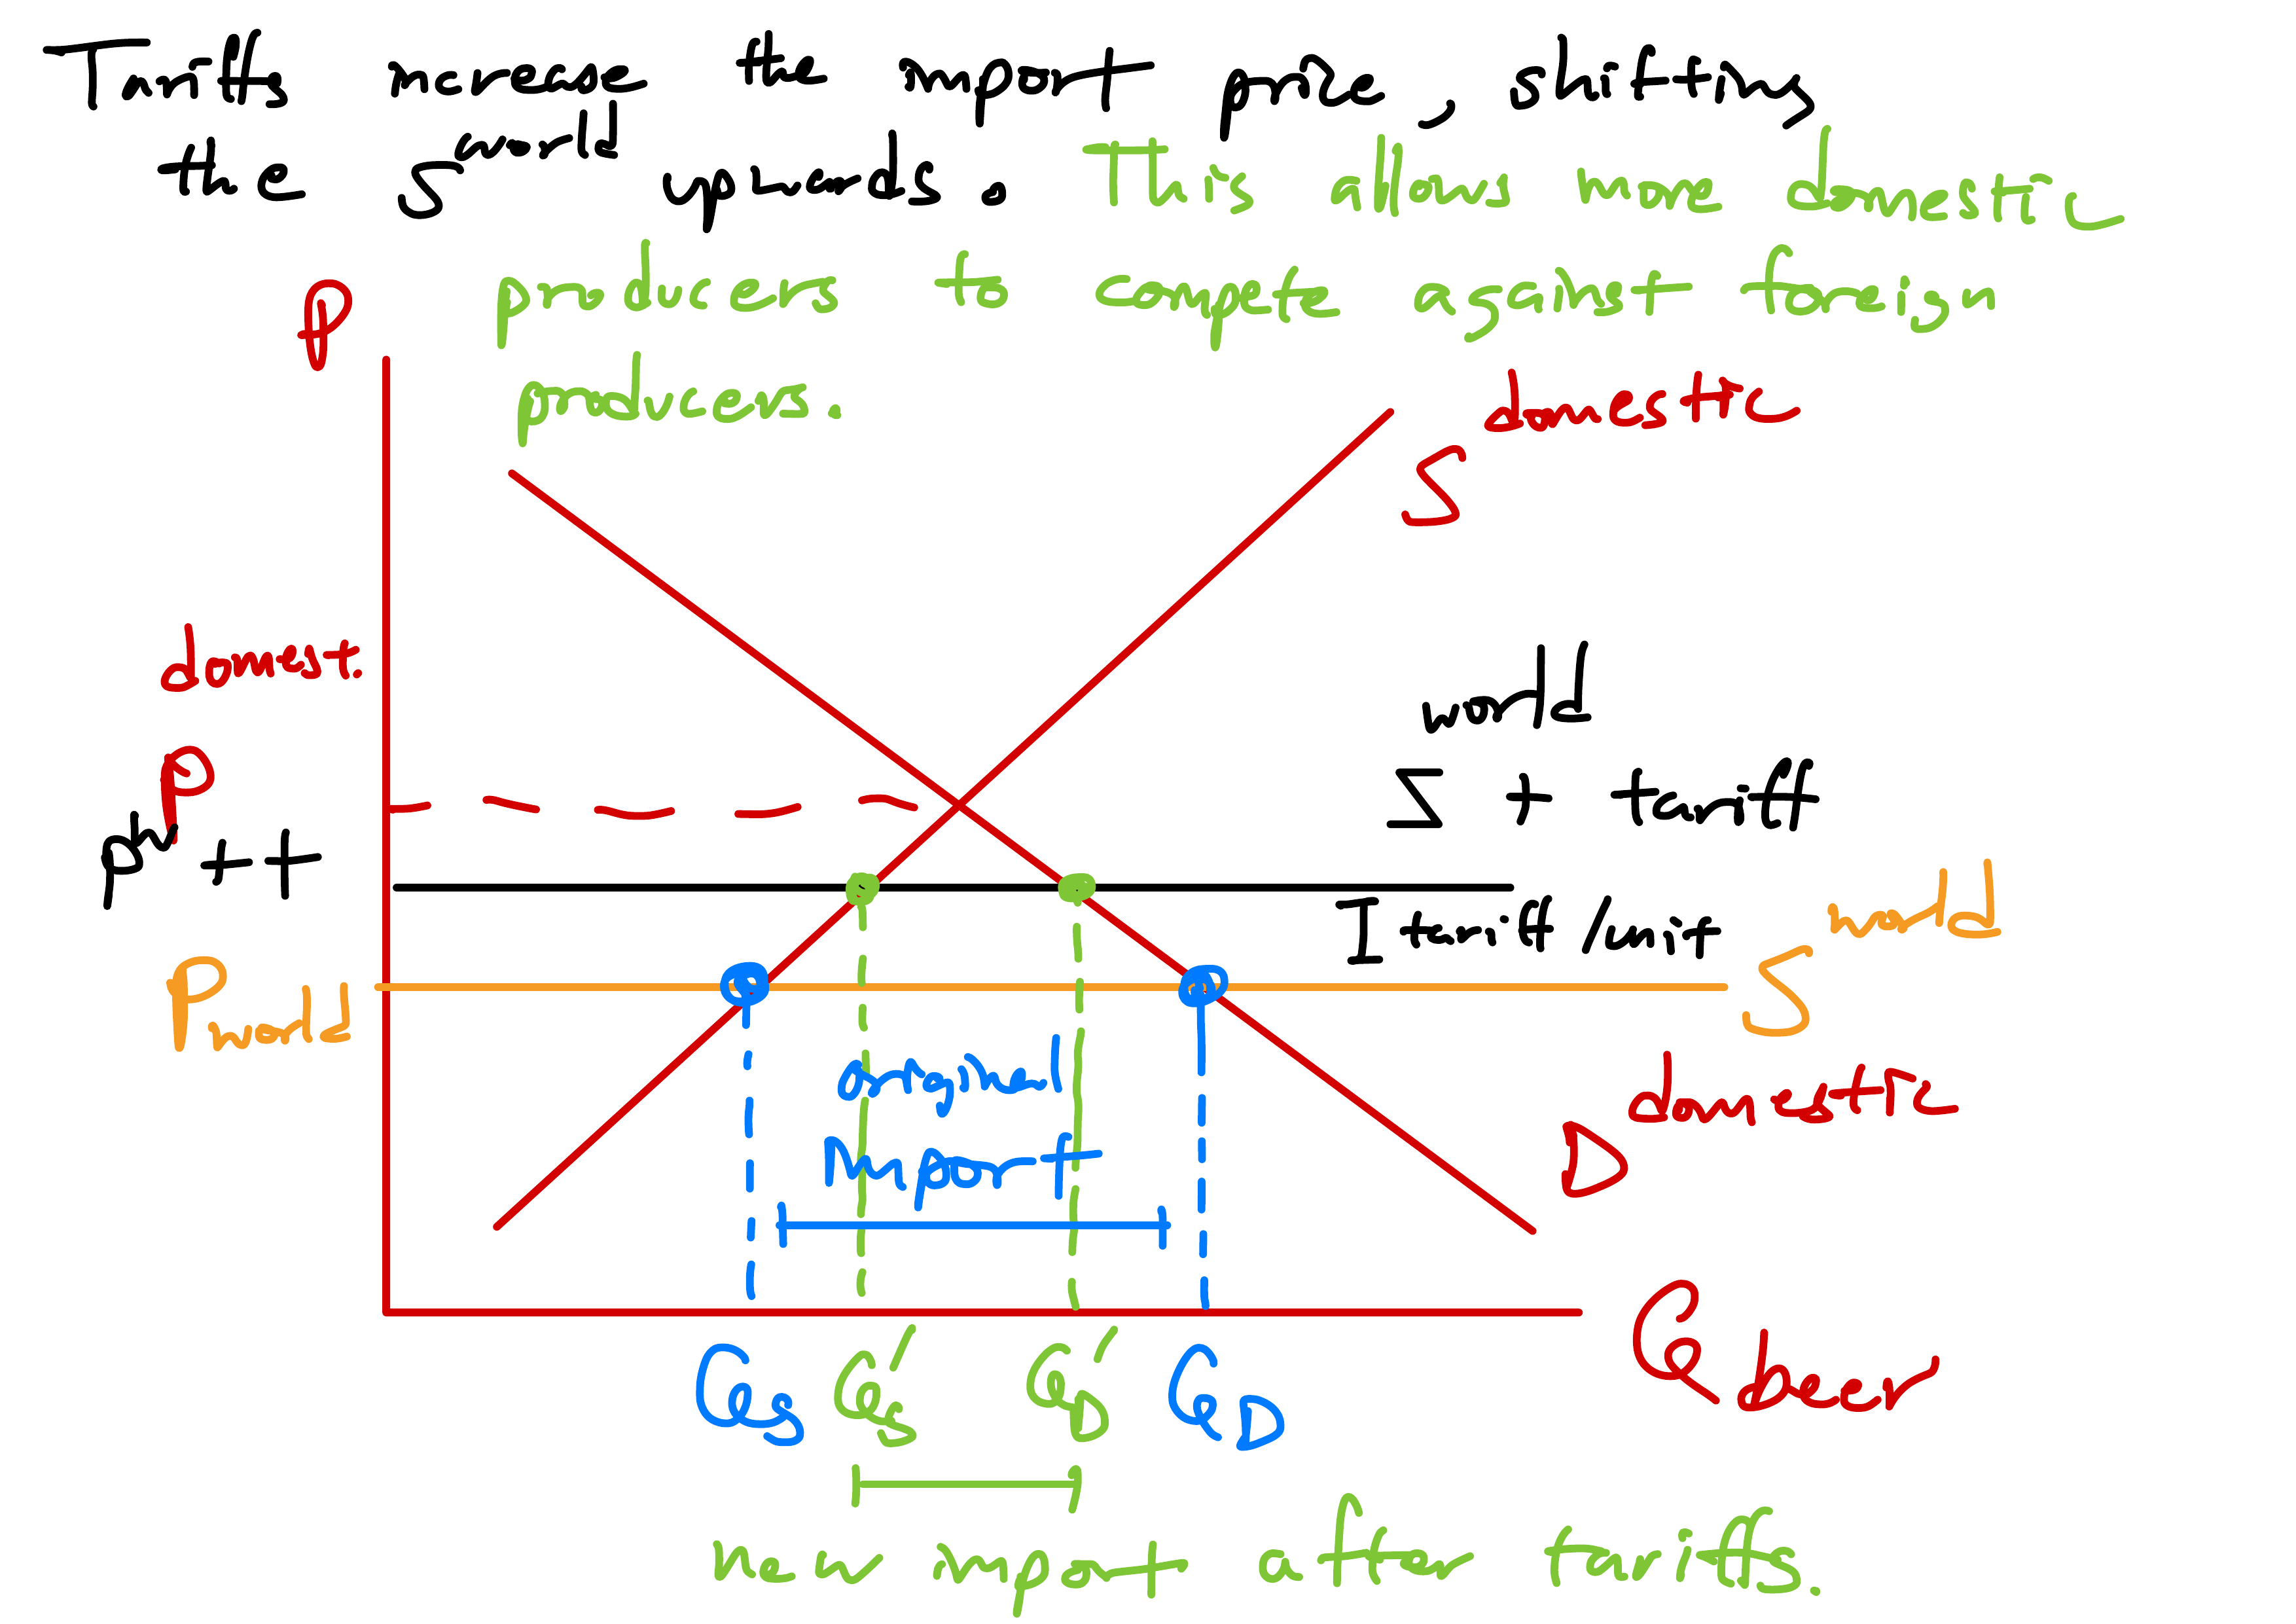 Tariffs increase the import price, shifting
the S^world upwards. This allows more domestic
producers to compete against foreign
producers.
P
S^domestic
domest.
P
world
S + tariff
P^w + t
tariff/unit
S^world
P_world
original
import
D^domestic
Q_S Q_S' Q_D' Q_D
Q beer
new import after tariffs.